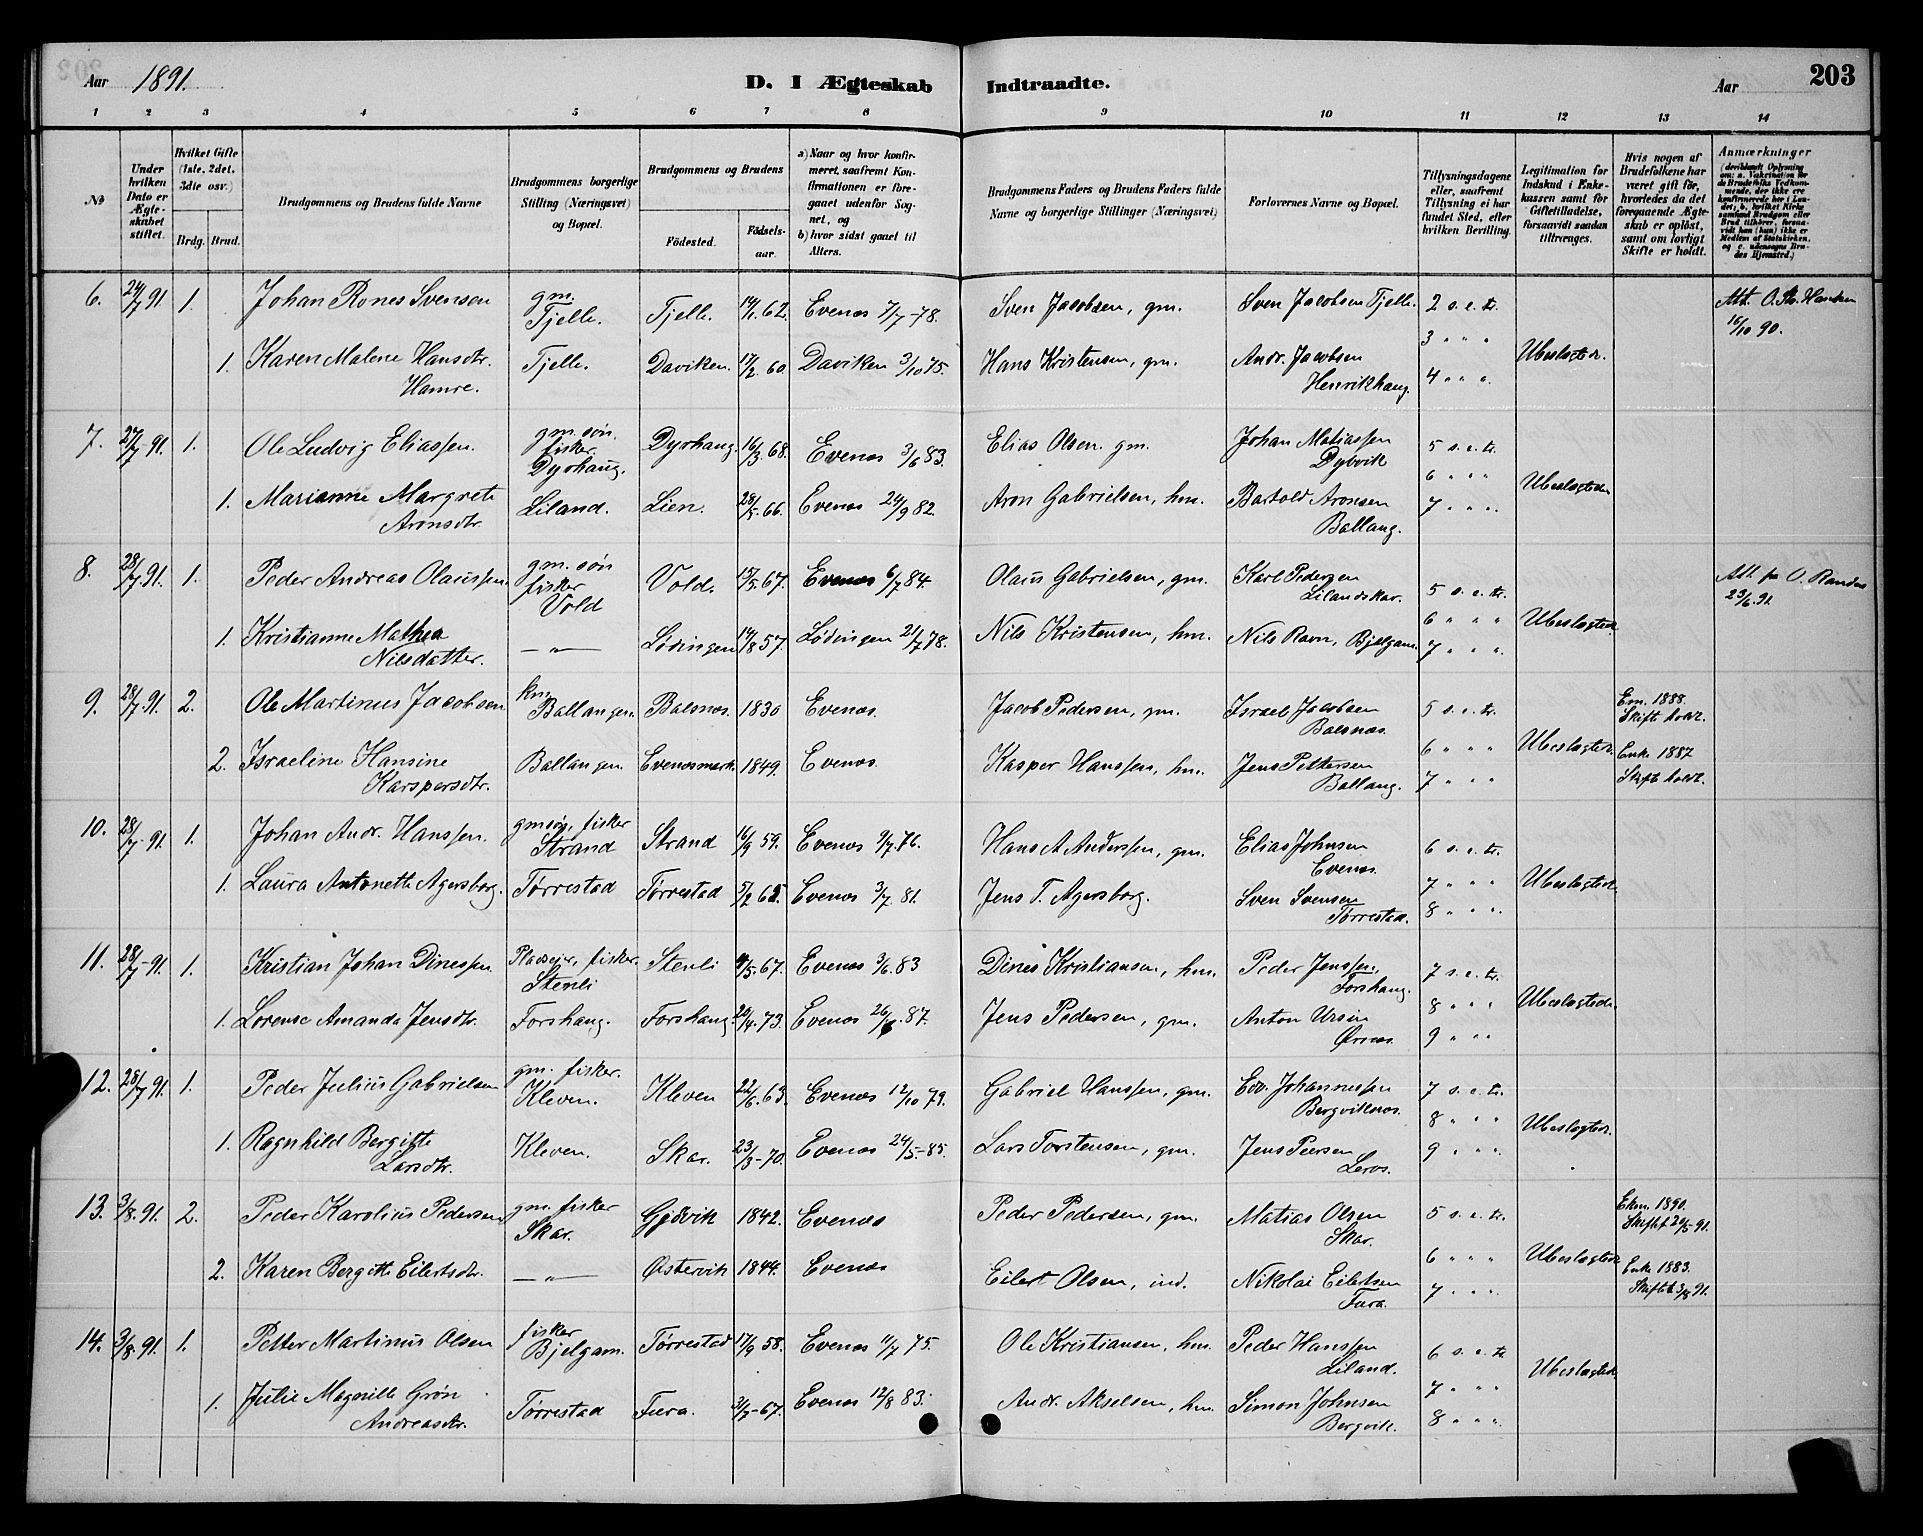 Aar 1891.
D. I Ægteskab Indtraadte.
Aar
203
1 2 3 4 5 6 7 8 9 10 11 12 13 14
No
Under hvilken Dato er Ægteskabet stiftet.
Hvilket Gifte (1ste, 2det, 3die osv.)
Brdg. Brud.
Brudgommens og Brudens fulde Navne
Brudgommens borgerlige Stilling (Næringsvei) og Bopæl.
Brudgommens og Brudens
Födested. Födselsaar.
a) Naar og hvor konfirmeret, saafremt Konfirmationen er foregaaet udenfor Sognet, og b) hvor sidst gaaet til Alters.
Brudgommens Faders og Brudens Faders fulde Navne og borgerlige Stillinger (Næringsvei)
Forlovernes Navne og Bopæl.
Tillysningsdagene eller, saafremt Tillysning ei har fundet Sted, efter hvilken Bevilling.
Legitimation for Indskud i Enkekassen samt for Giftetilladelse, forsaavidt saadan tiltrænges.
Hvis nogen af Brudefolkene har været gift för, hvorledes da det foregaaende Ægteskab er oplöst, samt om lovligt Skifte er holdt.
Anmærkninger (deriblandt Oplysning om: a. Vakcination for de Brudefolks Vedkommende, der ikke ere konfirmerede her i Landet; b. hvilket Kirkesamfund Brudgom eller Brud tilhörer, forsaavidt han (hun) ikke er Medlem af Statskirken, og c. udensogns Brudes Hjemsted.)
6. 24/7 91. 1. Johan Rones Svensen gm. Tjelle. Tjelle. 14/1. 62. Evenes 7/7-78. Sven Jacobsen, gm. Sven Jacobsen Tjelle. 2 s. e. tr. Att. O. Hansen 16/10 90.
1. Karen Malene Hansdtr. Hamre. Tjelle. Daviken. 17/2. 60. Daviken 3/10 75. Hans Kristensen, gm. Andr. Jacobsen Henrikhaug. 3 " " 4 " " Ubeslægtede.
7. 27/7-91. 1. Ole Ludvig Eliassen. gm. søn. fisker. Dyrhaug. Dyrhaug. 16/3. 68. Evenes 3/6 83. Elias Olsen gm. Johan Matiassen Dybvik 5 s. e. tr.
1. Marianne Margrete Aronsdtr. Liland. Lien. 28/5. 66. Evenes 24/9 82. Aron Gabrielsen, hm. Bartold Aronsen Ballang. 6 " " 7 " " Ubeslægtede
8. 28/7. 91. 1. Peder Andreas Olaussen. gm. søn fisker Vold Vold. 15/5. 67. Evenes 6/7 84. Olaus Gabrielsen, gm. Karl Pedersen Lilandskar. 5 s. e. tr. Att. fra O. Randas 23/6. 91.
1. Kristianne Mathea Nilsdatter. — " — Lødingen 14/8 57. Lødingen 21/7 78. Nils Kristensen, hm. Nils Ravn, Bjelgam. 6 " " 7 " " Ubeslægtede.
9. 28/7. 91. 2. Ole Martinus Jacobsen km. Ballangen. Balsnes. 1830 Evenes. Jacob Pedersen, gm. Israel Jacobsen Balsnæs. 5 s. e. tr. Em. 1888. Skift. holdt.
2. Israeline Hansine Kaspersdtr. Ballangen. Evenesmark. 1849. Evenes. Kasper Hanssen, hm. Jens Pettersen Ballang. 6 " " 7 " " Ubeslægtede. Enke 1887 Skift holdt.
10. 28/7-91. 1. Johan Andr. Hanssen. gm søn, fisker Strand Strand 16/9 59. Evenes 9/7. 76. Hans A Anderssen, gm. Elias Johnsen Evenes. 6 s. e. tr.
1. Laura Antonette Agersborg. Tørrestad Tørrestad 5/2 65. Evenes 3/7. 81. Jens T. Agersborg. Sven Svensen Tørrestad. 7 " " 8 " " Ubeslægtede.
11. 28/7-91. 1. Kristian Johan Dinessen Pladsejer, fisker. Stenli Stenli 4/5-67. Evenes 3/6. 83 Dines Kristiansen, hm. Peder Jenssen, Forshaug. 7 s. e. tr.
1. Lorense Amanda Jensdtr. Forshaug. Forshaug. 20/4. 73. Evenes 26/6. 87. Jens Pedersen, gm. Anton Ursin Ørnes. 8 " " 9 " " Ubeslægtede.
12. 28/7 91. 1. Peder Julius Gabrielsen gm. fisker. Kleven. Kleven 22/6. 63. Evenes 12/10 79. Gabriel Hanssen, gm. Edv. Johannessen Bergviknes. 7 s. e. tr.
1. Ragnhild Bergitte Larsdtr. Kleven. Skar. 23/3-70. Evenes 24/5-85. Lars Torstensen, gm. Jens Peersen Leros. 8 " " 9 " " Ubeslægtede.
13. 3/8. 91. 2. Peder Karolius Pedersen gm. fisker Skar. Gjødvik 1842. Evenes Peder Pedersen, gm. Matias Olsen Skar. 5 s. e. tr. Ekm. 1890. Skiftet 20/5-91.
2. Karen Bergitte Eilertsdtr. — " — Østervik 1844. Evenes Eilert Olsen, ind. Nikolai Eilertsen Fura. 6 " " 7 " " Ubeslægtede. Enke 1883. Skiftet 3/8 91.
14. 3/8. 91. 1. Petter Martinus Olsen fisker Bjelgam. Tørrestad 17/9 58. Evenes 11/7 75. Ole Kristiansen, hm. Peder Hanssen Liland. 6 s. e. tr.
1. Julie Magnille Grøn Andreasdtr. Tørrestad Fura. 3/7-67. Evenes 12/8 83. Andr. Akselsen, hm. Simon Johnsen Bergvik. 7 " " 8 " " Ubeslægtede.